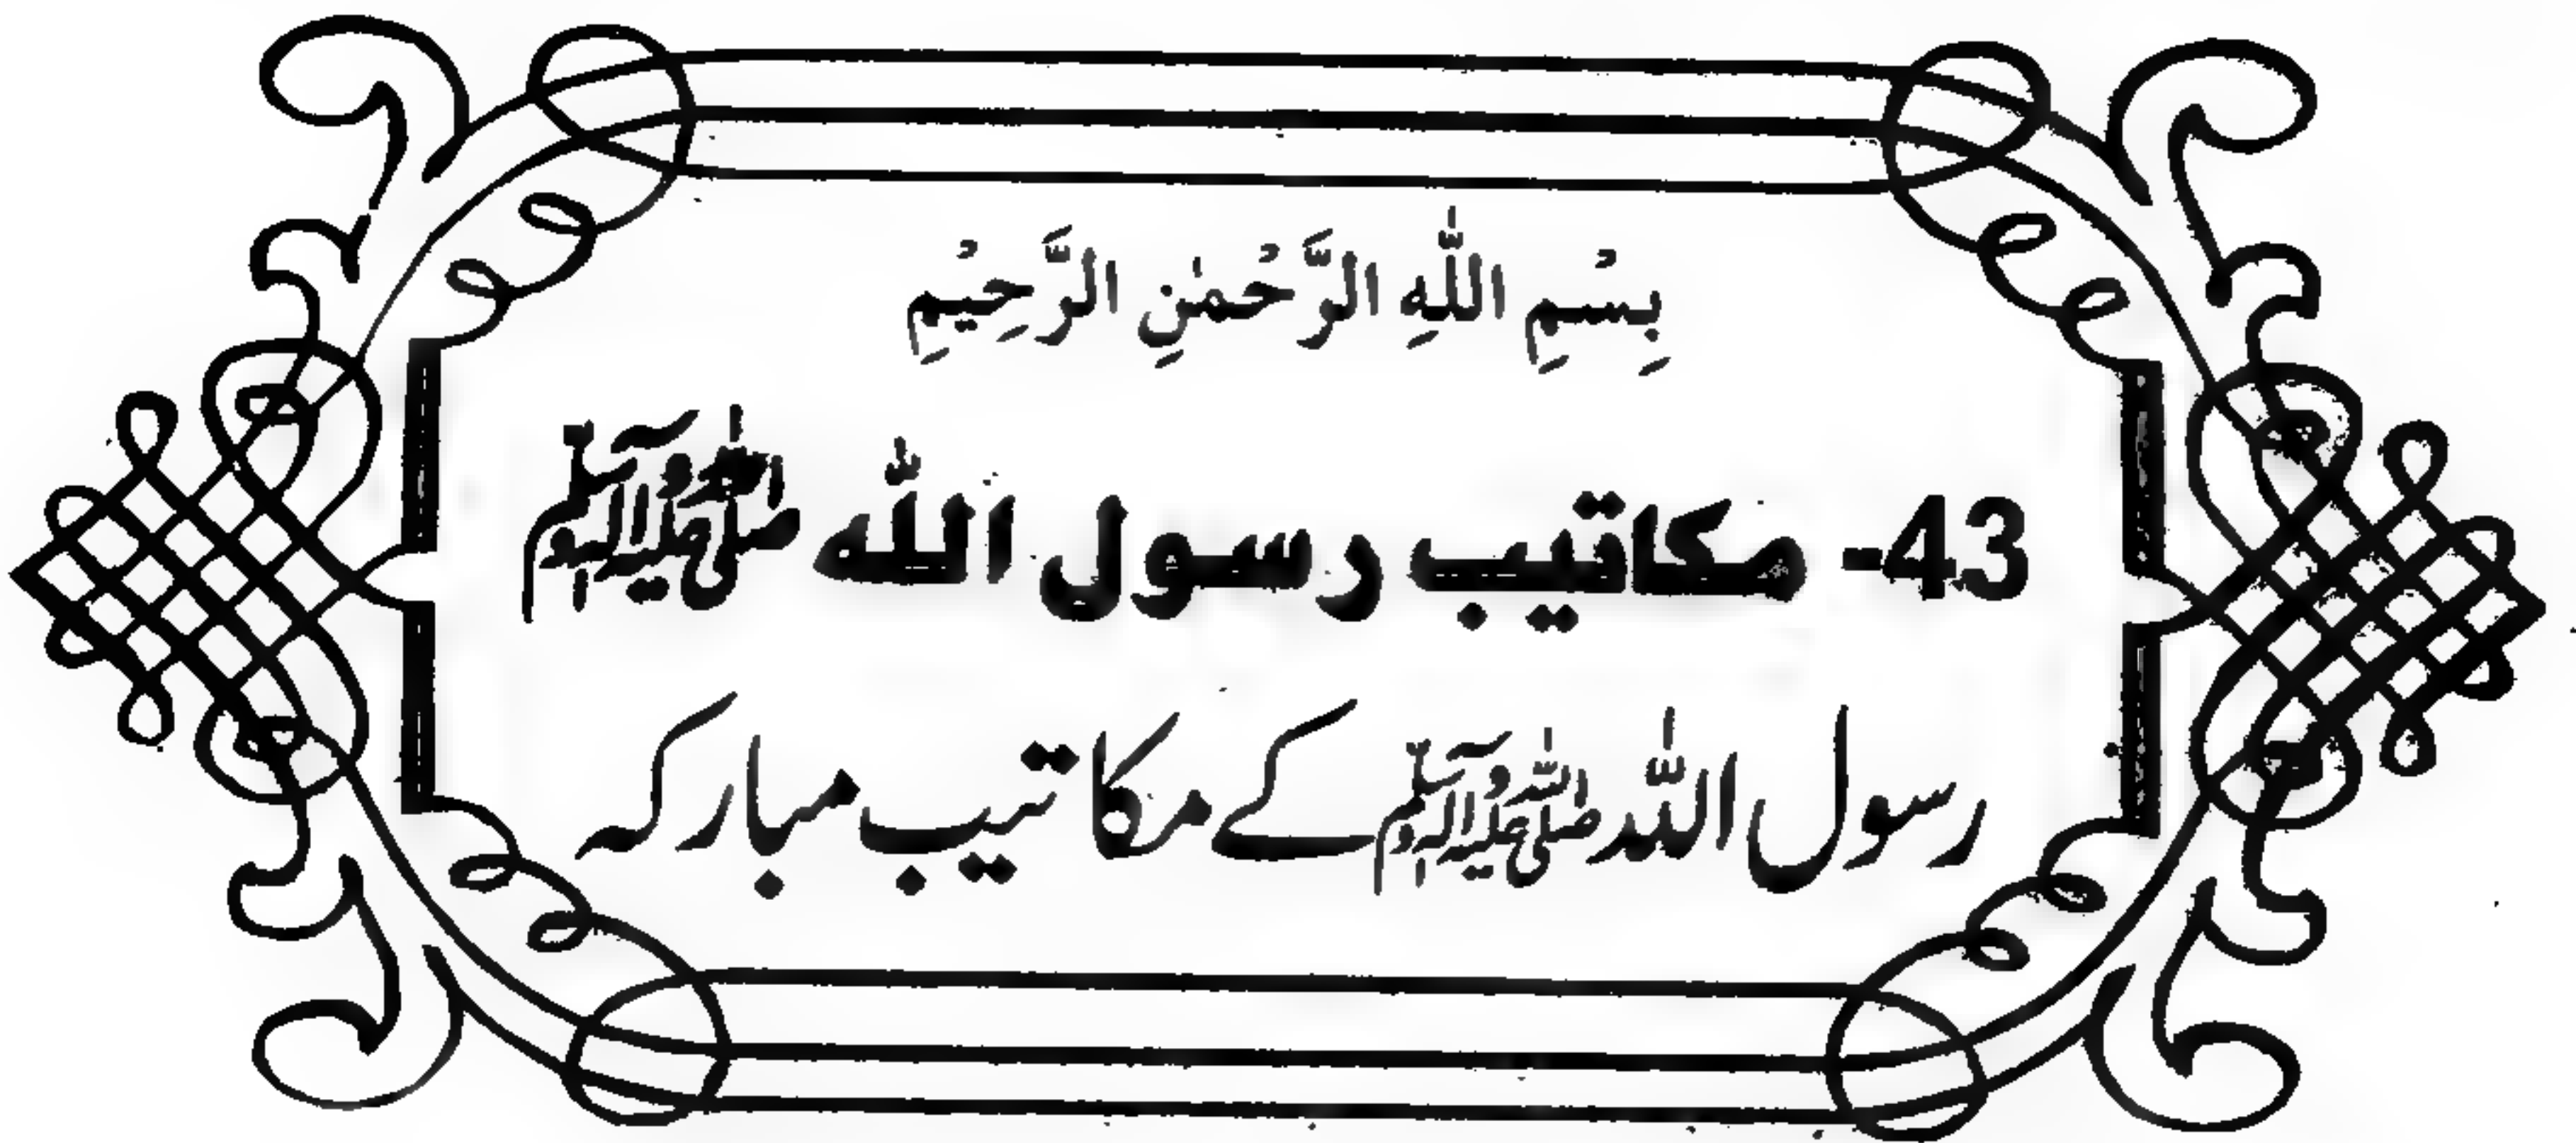 بِسْمِ اللّٰهِ الرَّحْمٰنِ الرَّحِيْمِ
43- مکاتیب رسول اللّٰہ صلی اللہ علیہ وآلہ وسلم
رسول اللّٰہ صلی اللہ علیہ وآلہ وسلم کے مکاتیب مبارکہ